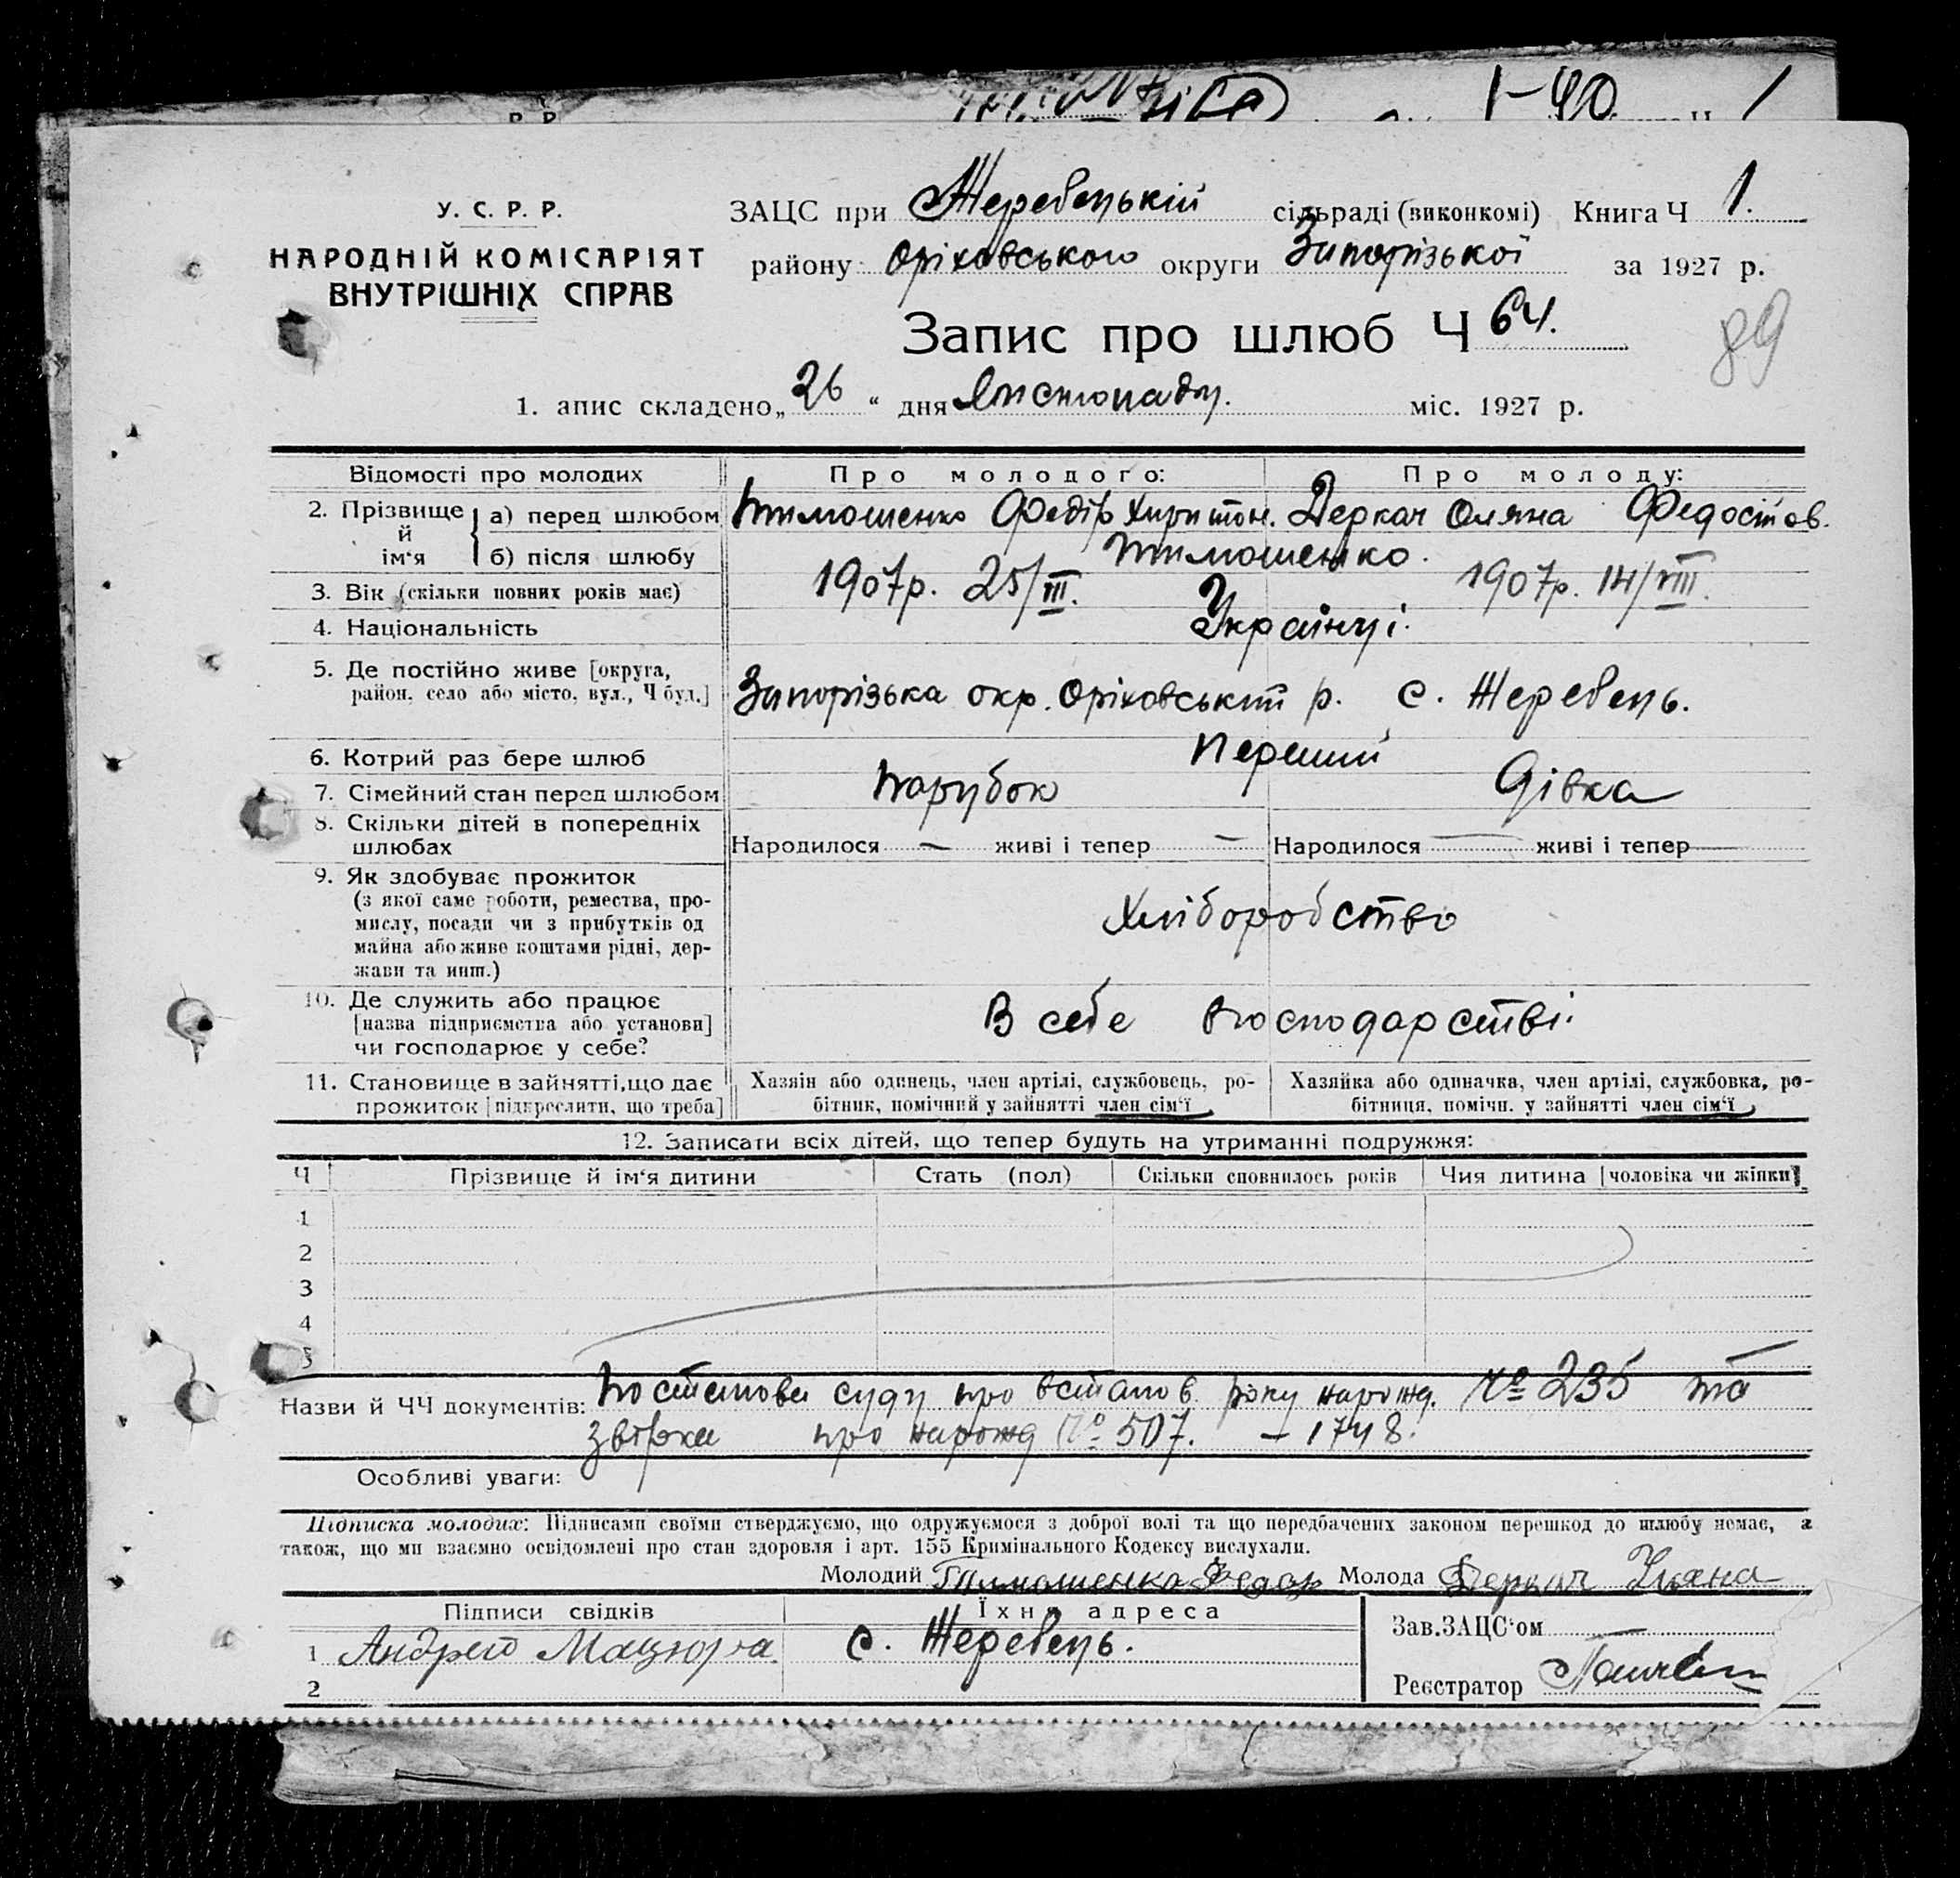 1-40 1
У. С. Р. Р.
НАРОДНІЙ КОМІСАРІЯТ
ВНУТРІШНІХ СПРАВ
ЗАЦС при Жеребецькій сільраді (виконкомі) Книга Ч 1.
району Оріховського округи Запорізької за 1927 р.
Запис про шлюб Ч 64.
89
1. апис складено „26“ дня Листопаду. міс. 1927 р.
Відомості про молодих Про молодого: Про молоду:
2. Прізвище й ім‘я а) перед шлюбом Тимошенко Федір Харитон. Деркач Оляна Федосіїов.
б) після шлюбу Тимошенко.
3. Вік (скільки повних років має) 1907р. 25/III. 1907р. 14/VIII.
4. Національність Українці.
5. Де постійно живе [округа,
район, село або місто, вул., Ч буд.] Запорізька окр. Оріховський р. с. Жеребець.
6. Котрий раз бере шлюб Перший
7. Сімейний стан перед шлюбом Парубок Дівка
8. Скільки дітей в попередніх
шлюбах Народилося — живі і тепер — Народилося — живі і тепер —
9. Як здобуває прожиток
(з якої саме роботи, ремества, про-
мислу, посади чи з прибутків од
майна або живе коштами рідні, дер-
жави та инш.) Хліборобство
10. Де служить або працює
[назва підприємства або установи]
чи господарює у себе? В себе в господарстві.
11. Становище в зайнятті, що дає
прожиток [підкреслити, що треба]
Хазяін або одинець, член артілі, службовець, ро-
бітник, помічний у зайнятті член сім‘ї
Хазяйка або одиначка, член артілі, службовка, ро-
бітниця, помічн. у зайнятті член сім‘ї
12. Записати всіх дітей, що тепер будуть на утриманні подружжя:
Ч Прізвище й ім‘я дитини Стать (пол) Скільки сповнилось років Чия дитина [чоловіка чи жінки]
1
2
3
4
5
Назви й ЧЧ документів: Постанова суду про встанов. року нарожд. № 235 та
звірка про нарожд № 507. — 1748.
Особливі уваги:
Підписка молодих: Підписами своїми стверджуємо, що одружуємося з доброї волі та що передбачених законом перешкод до шлюбу немає, а
також, що ми взаємно освідомлені про стан здоровля і арт. 155 Кримінального Кодексу вислухали.
Молодий Тимошенко Федор Молода Деркач Уляна
Підписи свідків Їхня адреса
1 Андрей Мацюра с. Жеребець.
2
Зав. ЗАЦС‘ом
Реєстратор